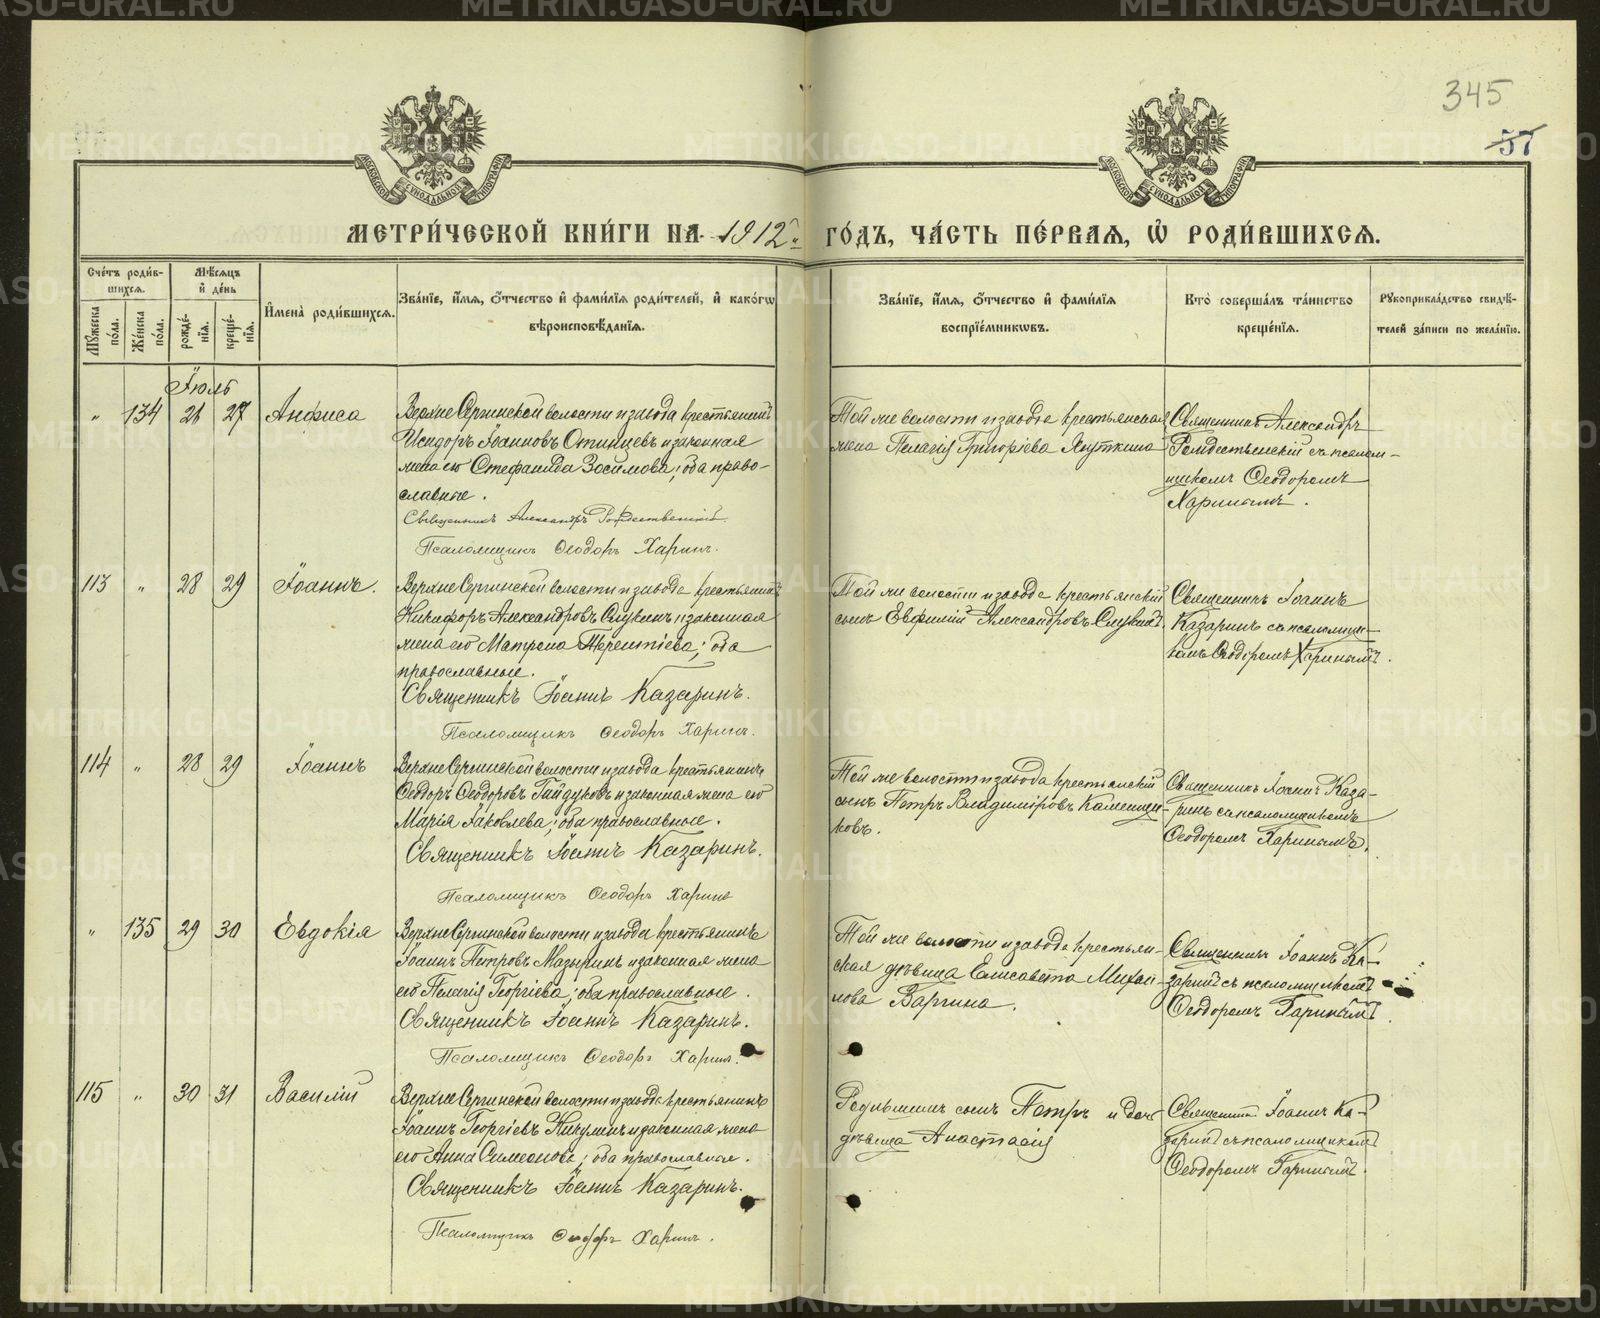 345
57
МОСКОВСКОЙ СѴНОДАЛЬНОЙ ТИПОГРАФІИ
МОСКОВСКОЙ СѴНОДАЛЬНОЙ ТИПОГРАФІИ
МЕТРИ́ЧЕСКОЙ КНИ́ГИ НА 1912 ГО́ДЪ, ЧА́СТЬ ПЕ́РВАЯ, Ѡ҆ РОДИ́ВШИХСЯ.
Сче́тъ роди́в-
шихся.
Мѣ́сяцъ
и҆ де́нь
Мꙋ́жеска
по́ла.
Же́нска
по́ла.
рожде́-
нїя.
креще́-
нїя.
И҆мена̀ роди́вшихся.
Зва́нїе, и҆́мя, ѻ҆́тчество и҆ фами́лїя роди́телей, и҆ како́гѡ
вѣроисповѣ́данїя.
Зва́нїе, и҆́мя, ѻ҆́тчество и҆ фами́лїя
воспрїе́мниковъ.
Кто̀ соверша́лъ та́инство
креще́нїя.
Рꙋкоприкла́дство свидѣ́-
телей за́писи по жела́нїю.
Іюль
" 134 26 27 Анфиса
Верхне Сергинской волости и завода крестьянинъ
Исидоръ Іоанновъ Опинцевъ и законная
жена его Стефанида Зосимова; оба право-
славные.
Священникъ Александръ Рождественскій
Псаломщикъ Ѳеодоръ Харинъ.
Той же волости и завода крестьянская
жена Пелагія Григоріева Якуткина
Священникъ Александръ
Рождественскій съ псалом-
щикомъ Ѳеодоромъ
Харинымъ.
113 " 28 29 Іоаннъ.
Верхне Сергинской волости и завода крестьянинъ
Никифоръ Александровъ Слукинъ и законная
жена его Матрона Терентіева; оба
православные.
Священникъ Іоаннъ Казаринъ.
Псаломщикъ Ѳеодоръ Харинъ.
Той же волости и завода крестьянскій
сынъ Евфимій Александровъ Слукинъ.
Священникъ Іоаннъ
Казаринъ съ псаломщи-
комъ Ѳеодоромъ Харинымъ.
114 " 28 29 Іоаннъ
Верхне Сергинской волости и завода крестьянинъ
Ѳеодоръ Ѳеодоровъ Гайдуковъ и законная жена его
Марія Іаковлева; оба православные.
Священникъ Іоаннъ Казаринъ.
Псаломщикъ Ѳеодоръ Харинъ
Той же волости и завода крестьянскій
сынъ Петръ Владиміровъ Каменщи-
ковъ.
Священникъ Іоаннъ Каза-
ринъ съ псаломщикомъ
Ѳеодоромъ Харинымъ.
" 135 29 30 Евдокія
Верхне Сергинской волости и завода крестьянинъ
Іоаннъ Петровъ Мазыринъ и законная жена
его Пелагія Георгіева; оба православные.
Священникъ Іоаннъ Казаринъ.
Псаломщикъ Ѳеодоръ Харинъ.
Той же волости и завода крестьян-
ская дѣвица Елисавета Михаи-
лова Варгина.
Священникъ Іоаннъ Ка-
заринъ съ псаломщикомъ
Ѳеодоромъ Харинымъ.
115 " 30 31 Василій
Верхне Сергинской волости и завода крестьянинъ
Іоаннъ Георгіевъ Никулинъ и законная жена
его Анна Симеонова; оба православные.
Священникъ Іоаннъ Казаринъ.
Псаломщикъ Ѳеодоръ Харинъ.
Родившихъ сынъ Петръ и дочь
дѣвица Анастасія
Священникъ Іоаннъ Ка-
заринъ съ псаломщикомъ
Ѳеодоромъ Харинымъ.
METRIKI.GASO-URAL.RU